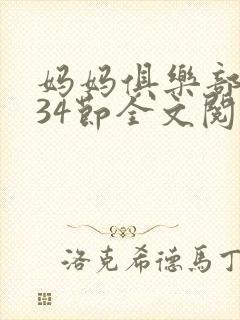 妈妈俱樂部
34節全文閱
洛克希德馬丁